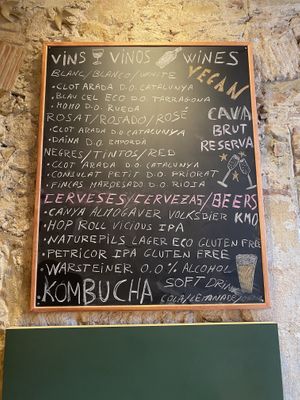 VINS VINOS WINES
BLANC/BLANCO/WHITE
VEGAN
• CLOT ARADA D.O. CATALUNYA
• BLAU CEL ECO D.O. TARRAGONA
• MOMO D.O. RUEDA
ROSAT/ROSADO/ROSÉ
• CLOT ARADA D.O. CATALUNYA
• DAINA D.O. EMPORDA
CAVA
BRUT
RESERVA
NEGRES/TINTOS/RED
• CLOT ARADA D.O. CATALUNYA
• CONSULAT PETIT D.O. PRIORAT
• FINCAS MARDESADO D.O. RIOJA
CERVESES/CERVEZAS/BEERS
• CANYA ALMOGAVER VOLKSDIER KM0
• HOP ROLL VICIOUS IPA
• NATUREPILS LAGER ECO GLUTEN FREE
• PETRICOR IPA GLUTEN FREE
• WARSTEINER 0.0% ALCOHOL
• KOMBUCHA
SOFT DRINK
COLA/LEMONADE/